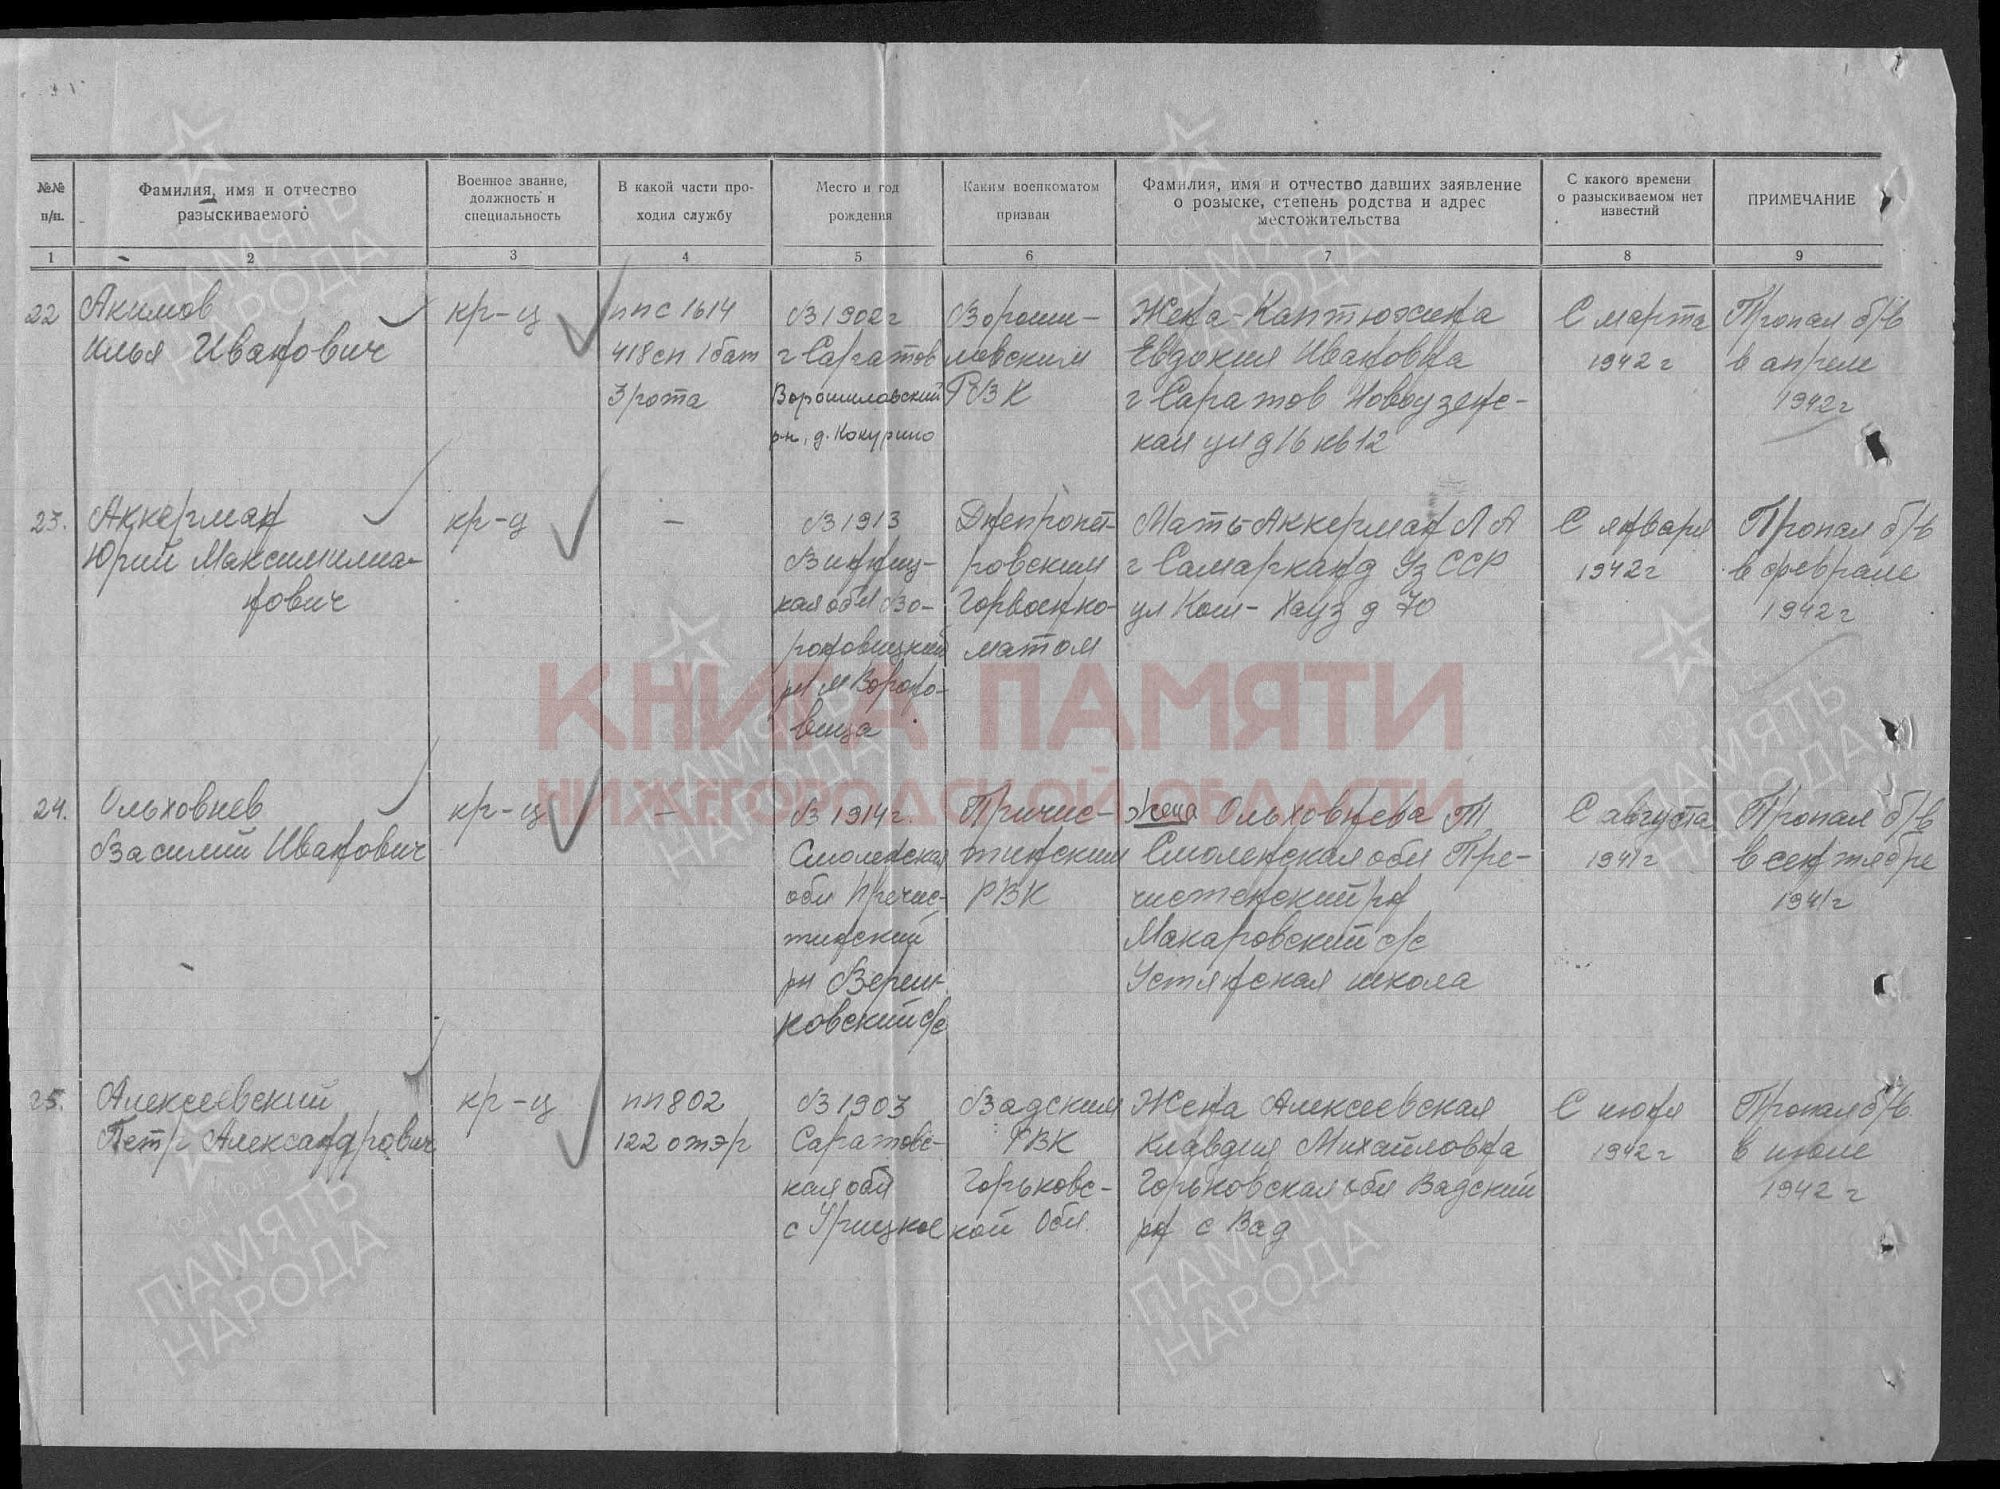 №№
п/п.
Фамилия, имя и отчество
разыскиваемого
Военное звание,
должность и
специальность
В какой части про-
ходил службу
Место и год
рождения
Каким военкоматом
призван
Фамилия, имя и отчество давших заявление
о розыске, степень родства и адрес
местожительства
С какого времени
о разыскиваемом нет
известий
ПРИМЕЧАНИЕ
1
2
3
4
5
6
7
8
9
22
Акимов
Илья Иванович
кр-ц
ппс 1614
418 сп 1 бат
3 рота
В 1902 г
г Саратов
Ворошиловский
р-н, д. Кокурино
Вороши-
ловским
РВК
Жена-Каптюхина
Евдокия Ивановна
г Саратов Новоузенс-
кая ул д 16 кв 12
С марта
1942 г
Пропал б/в
в апреле
1942 г
23.
Аккерман
Юрий Максимилиа-
нович
кр-ц
-
В 1913
Винниц-
кая обл Во-
роновицкий
рн м Вороно-
вица
Днепропет-
ровским
Горвоенко-
матом
Мать Аккерман Л А
г Самарканд Уз ССР
ул Кош-Хауз д 70
С января
1942 г
Пропал б/в
в феврале
1942 г
24.
Ольховнев
Василий Иванович
кр-ц
-
В 1914 г.
Смоленская
обл Пречис-
тинский
рн
ковский с/с
Причис-
тинским
РВК
Жена Ольховнева Т
Смоленская обл Пре-
чистенский рн
Макаровский с/с
Устянская школа
С августа
1941 г
Пропал б/в
в сентябре
1941 г
25.
Алексеевский
Петр Александрович
кр-ц
пп 802
122 отэр
В 1903
Саратовс-
кая обл
с Урицкое
Вадским
РВК
Горьковс-
кой Обл.
Жена Алексеевская
Клавдия Михайловна
Горьковская обл Вадский
рн с Вад
С июня
1942 г
Пропал б/в.
в июле
1942 г
КНИГА ПАМЯТИ
НИЖЕГОРОДСКОЙ ОБЛАСТИ
ПАМЯТЬ
НАРОДА
ПАМЯТЬ
НАРОДА
ПАМЯТЬ
НАРОДА
ПАМЯТЬ
НАРОДА
ПАМЯТЬ
НАРОДА
ПАМЯТЬ
НАРОДА